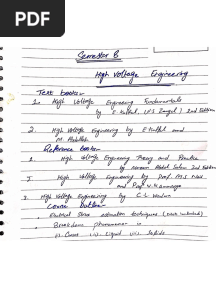 PDF
Semester 8
High Voltage Engineering
Text books-
1. High Voltage Engineering Fundamentals
by E Kuffel, W.S Zaengl) 2nd Edition
2. High Voltage Engineering by E Kuffel and
M. Abdullah
Reference books-
1. High Voltage Engineering Theory and Practice
by Abdel Salam 2nd Edition
High Voltage Engineering by Prof. M.S Naidu
and Prof V. Kamaraju
3. High Voltage Engineering by C L Wadhwa
Course
Electrical Stress estimation techniques
Breakdown phenomenon in
Liquid Solids